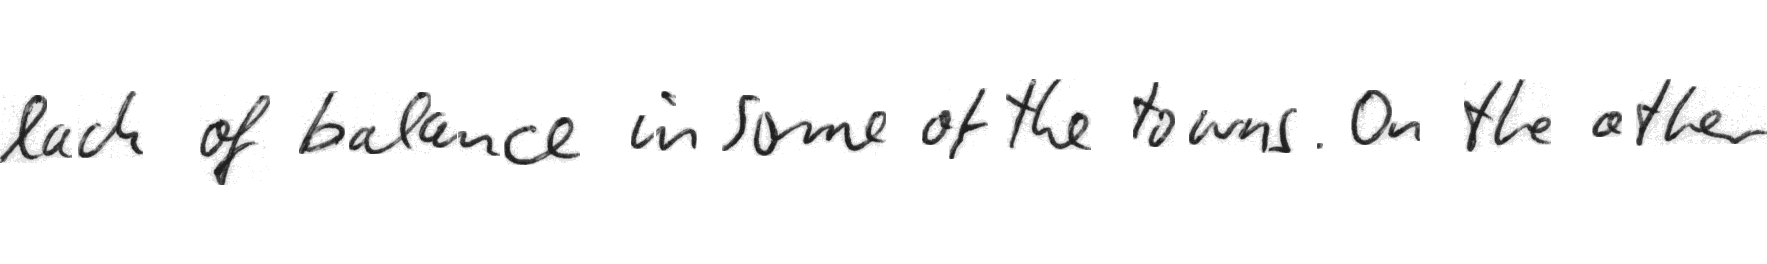 lack of balance in some of the towns. On the other